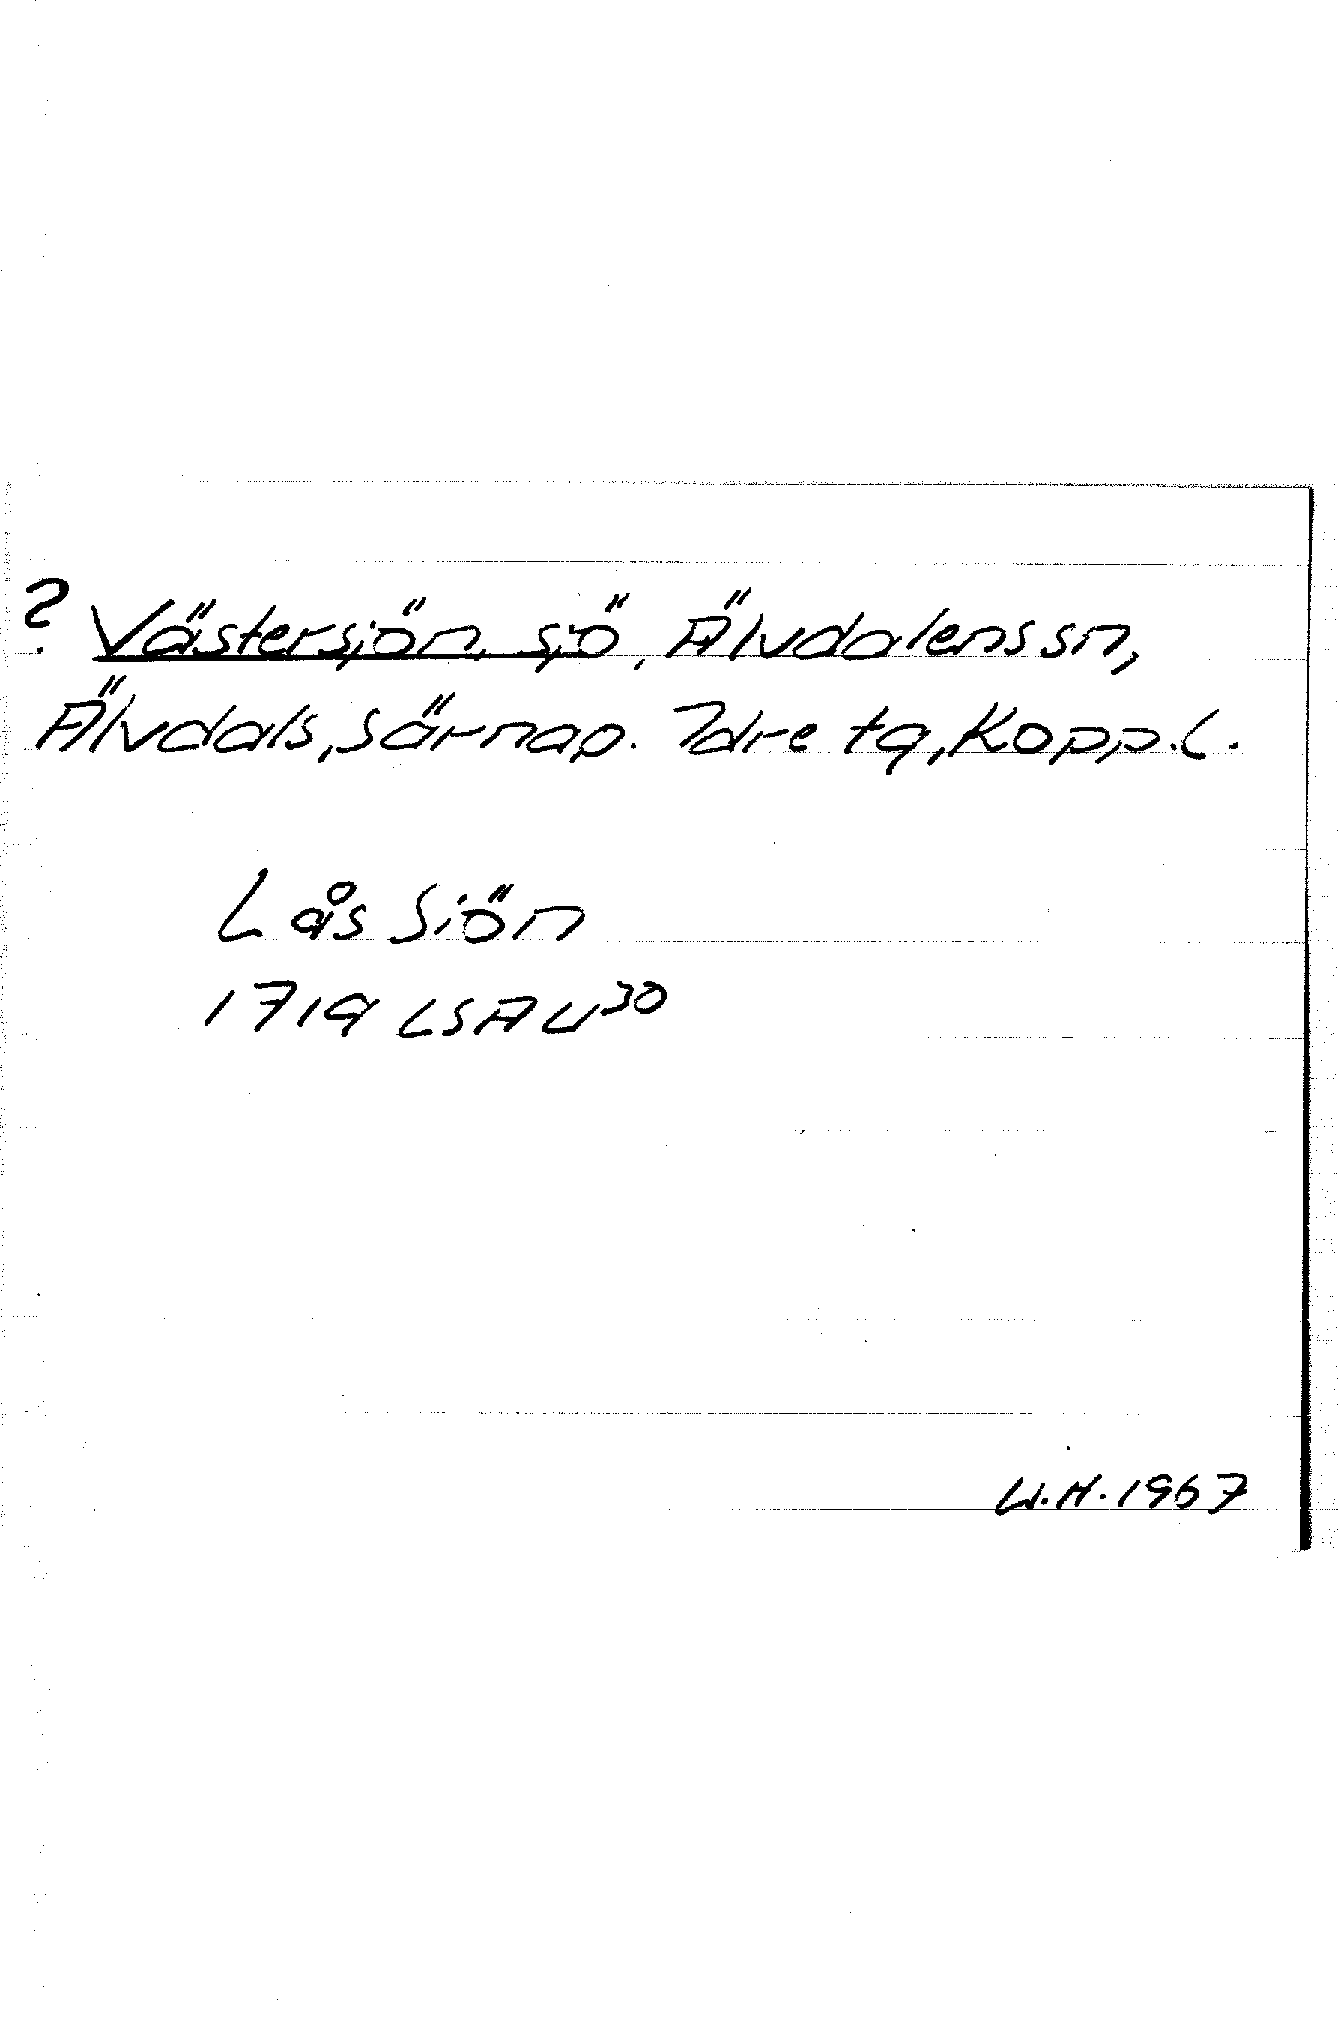 ? Västersjön, sjö, Älvdalens sn,
Älvdals, särnap. Idre tg, Kopp.l.
Lås Siön
1719 LSA U30
W.H. 1967